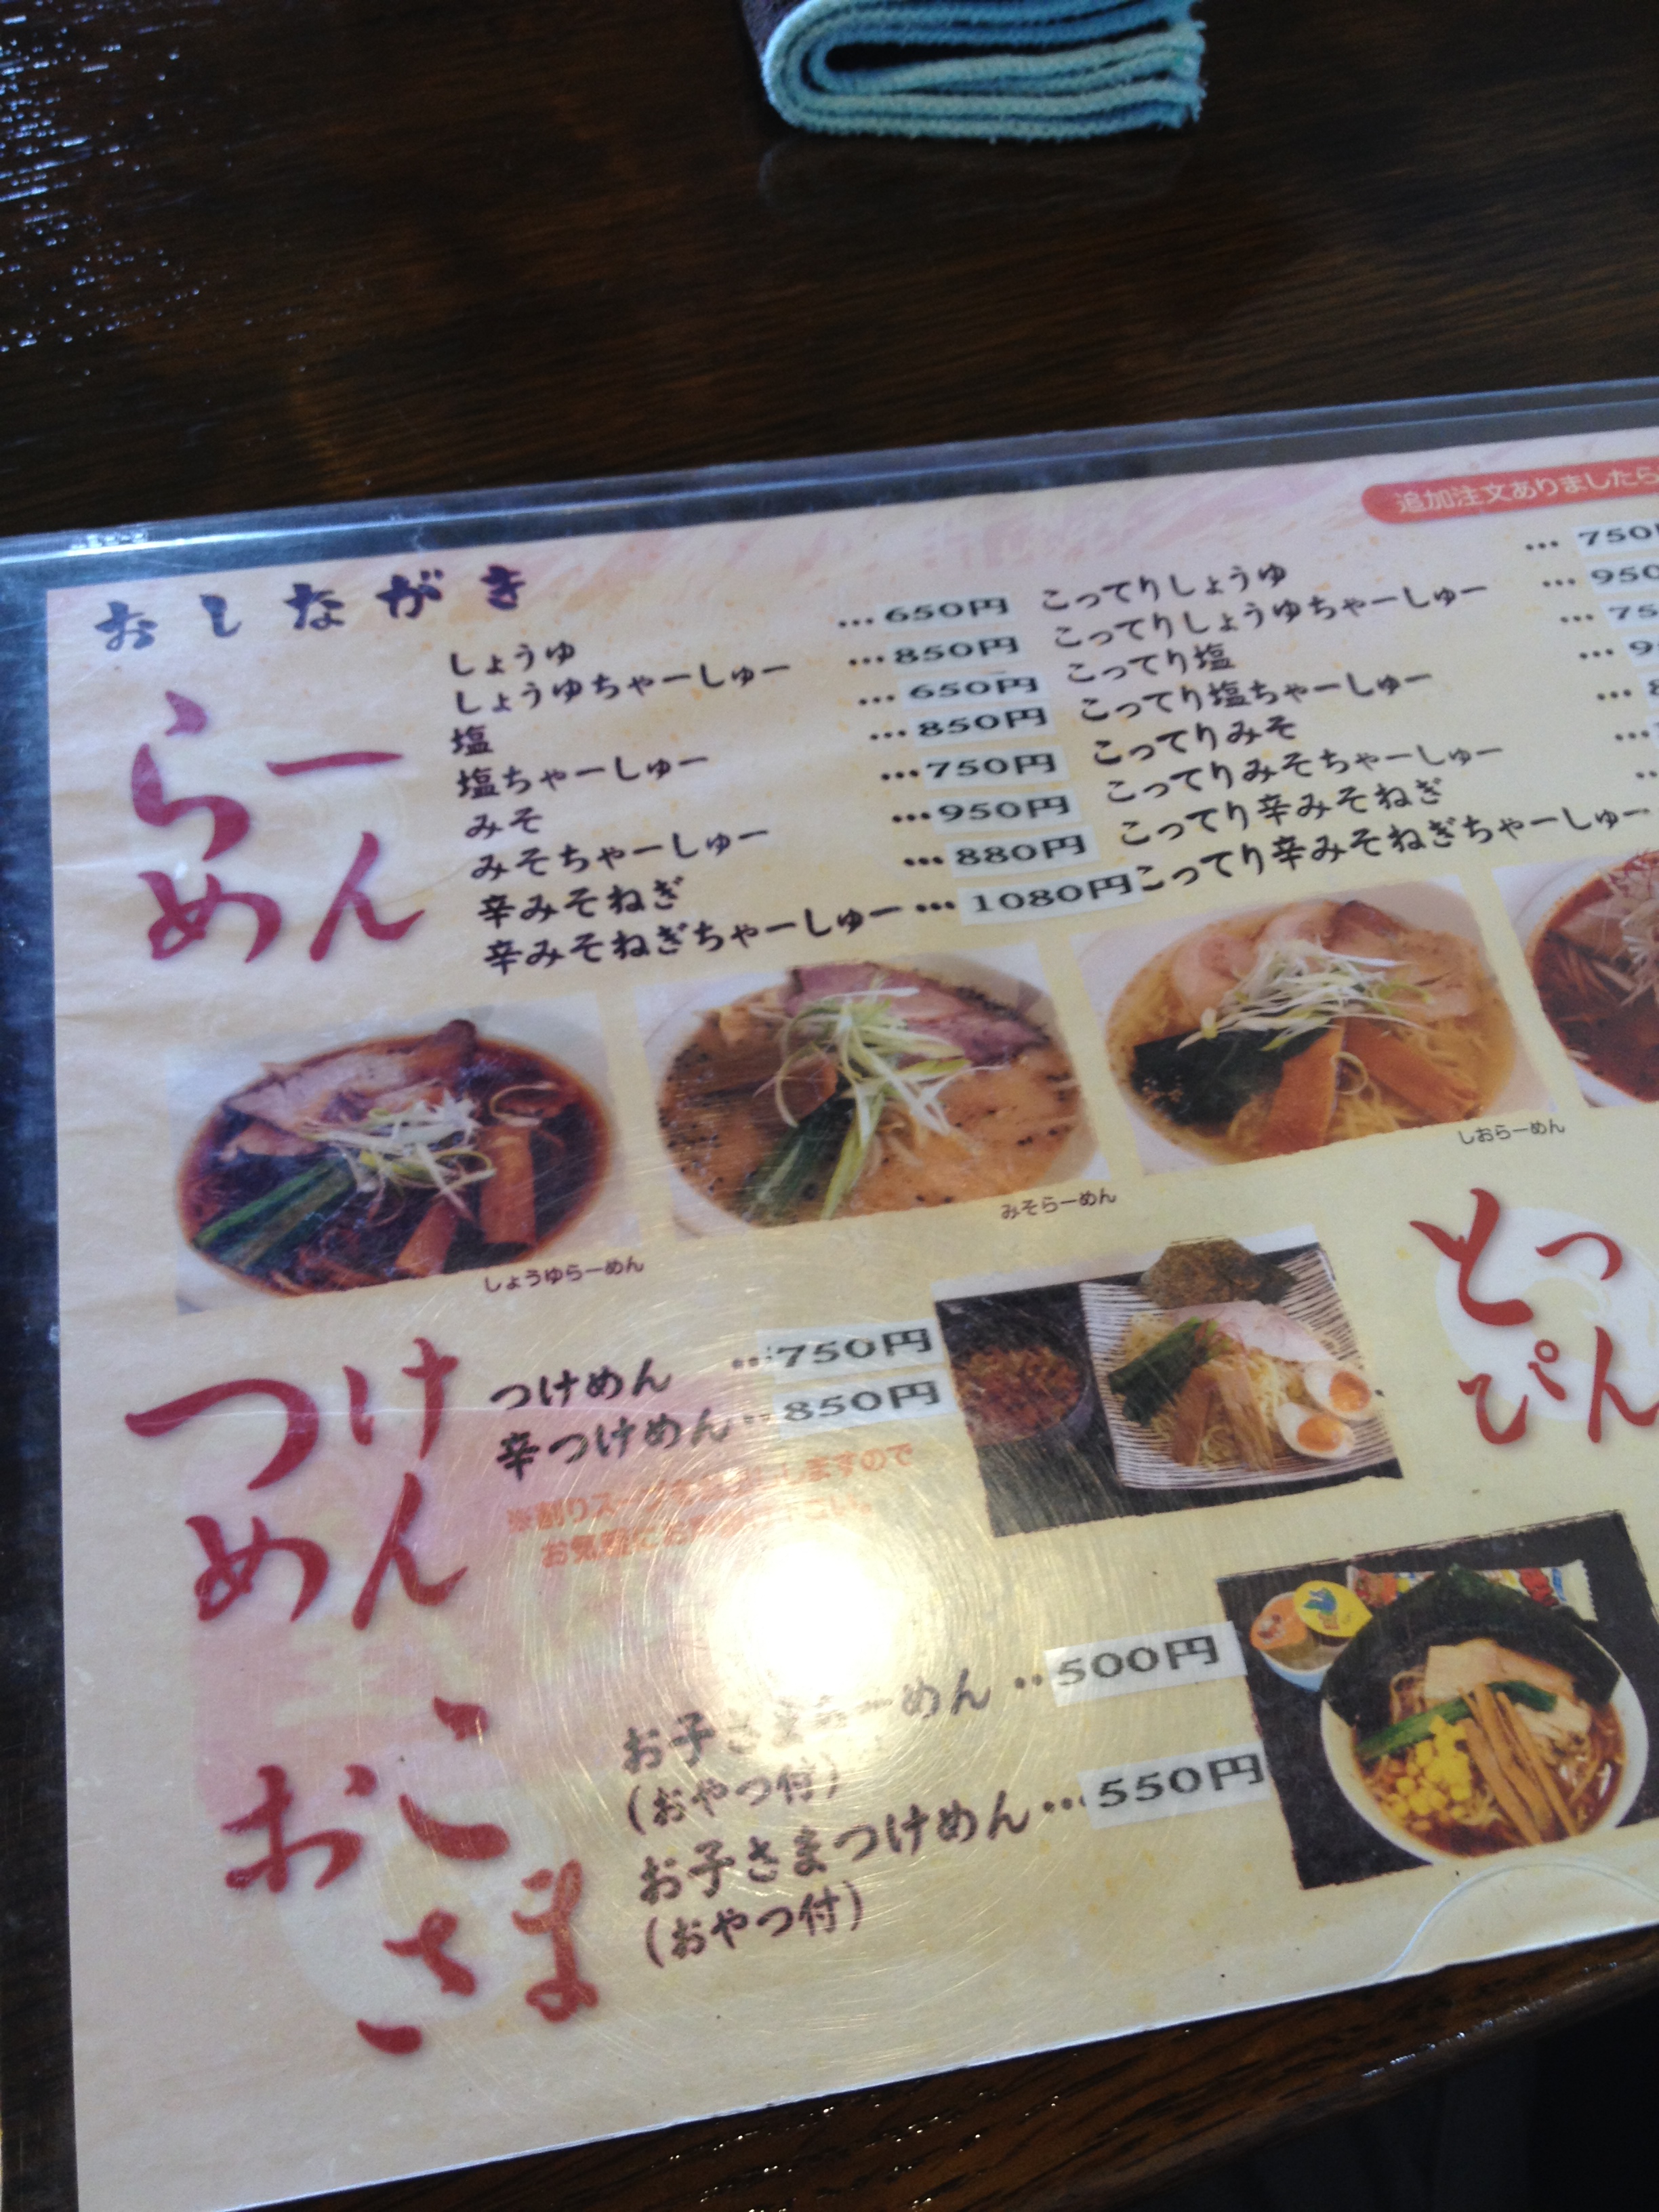 おしながき
追加注文ありましたら
らーめん
しょうゆ …650円
しょうゆちゃーしゅー …850円
塩 …650円
塩ちゃーしゅー …850円
みそ …750円
みそちゃーしゅー …950円
辛みそねぎ …880円
辛みそねぎちゃーしゅー …1080円
こってりしょうゆ …750
こってりしょうゆちゃーしゅー …950
こってり塩 …
こってり塩ちゃーしゅー …
こってりみそ …
こってりみそちゃーしゅー …
こってり辛みそねぎ
こってり辛みそねぎちゃーしゅー
しょうゆらーめん
みそらーめん
しおらーめん
つけめん
つけめん …750円
辛つけめん …850円
※割りスー しますので
とっぴん
おこさま
お子さまらーめん …500円
(おやつ付)
お子さまつけめん …550円
(おやつ付)